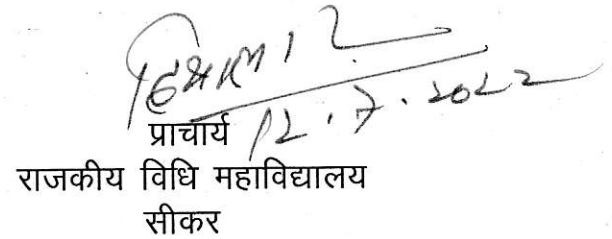 12.7.2022
प्राचार्य
राजकीय विधि महाविद्यालय
सीकर